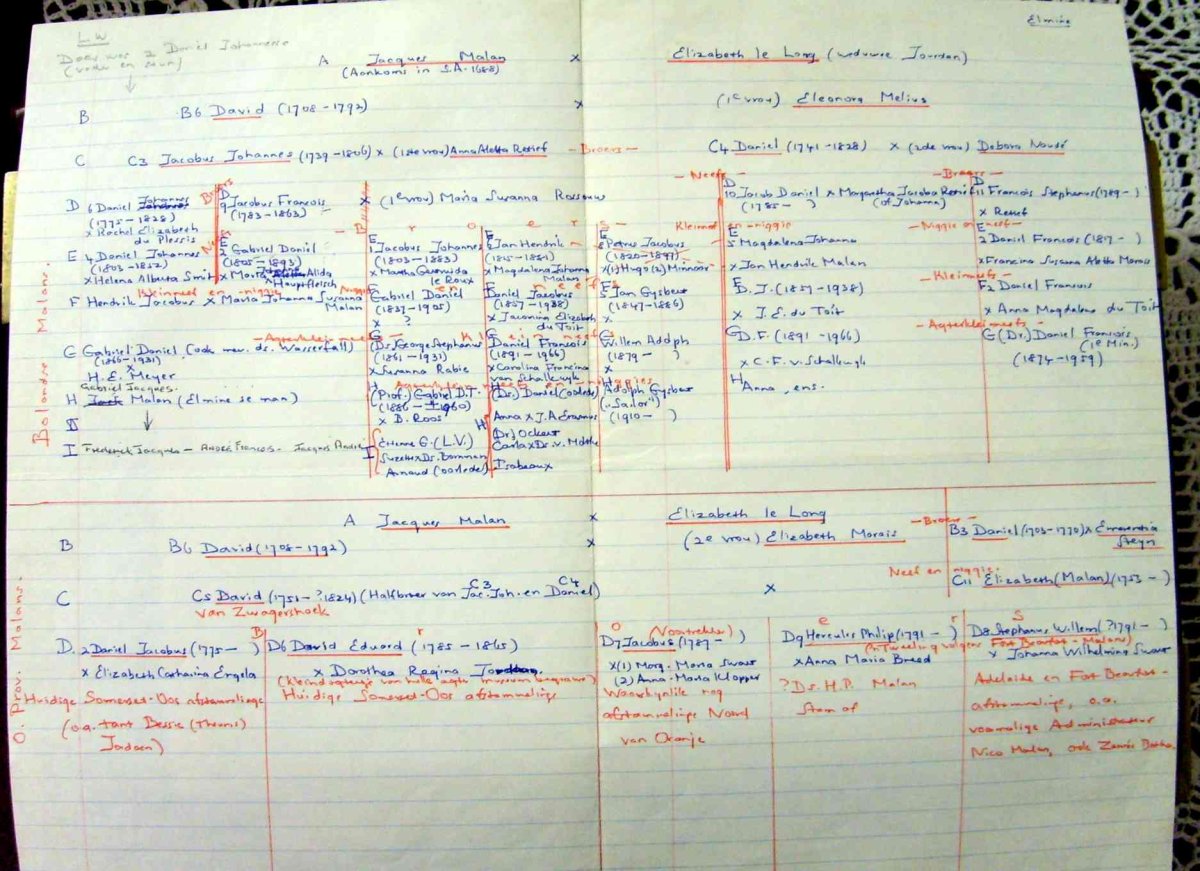 Elmine
L.W
Daar was 2 Daniel Johannesse
(vader en seun)
A Jacques Malan x Elizabeth le Long (weduwee Jourdan)
(Aankoms in S.A. 1688)
B B6 David (1708-1792) x (1e vrou) Eleonora Melius
C C3 Jacobus Johannes (1739-1806) x (1ste vrou) Anna Aletta Retief - Broers - C4 Daniel (1741-1828) x (2de vrou) Debora Nousé
- Neefs - - Broers -
D 6 Daniel Johannes
(1775-1828)
x Rachel Elizabeth
du Plessis
Broers
D
9 Jacobus Francois x (1e vrou) Maria Susanna Rossouw
(1783-1863)
D
10 Jacob Daniel x Margaretha Jacoba Retief
(1785- ) (of Johanna)
D
11 Francois Stephanus (1789- )
x Retief
- B r o e r s -
Kleinneef en niggie
Niggie en neef -
E 4 Daniel Johannes
(1803-1852)
x Helena Alberta Smit
Neefs
E
2 Gabriel Daniel
(1805-1893)
x Maria Alida
Hauptfleisch
E
1 Jacobus Johannes
(1803-1883)
x Martha Gertruida
le Roux
E
6 Jan Hendrik
(1815-1881)
x Magdalena Johanna
Malan
E
8 Petrus Jacobus
(1820-1897)
x (1) Hugo (2) Minnaar
E
5 Magdalena Johanna
x Jan Hendrik Malan
E
2 Daniel Francois (1817- )
x Francina Susanna Aletta Morais
Kleinneef en niggie
- Kleinneefs -
F Hendrik Jacobus x Maria Johanna Susanna
Malan
Gabriel Daniel
(1837-1905)
x ?
Daniel Jacobus
(1857-1938)
x Jacomina Elizabeth
du Toit
5 Jan Gysbert
(1847-1886)
x.
D.J. (1857-1938)
x J.E. du Toit
F2 Daniel Francois
x Anna Magdalena du Toit
Agterkleinneefs -
G Gabriel Daniel (Look mev. ds. Wasserfall)
(1866-1931)
x
H.E. Meyer
G
(Ds.) George Stephanus
(1861-1931)
x Susanna Rabie
G
Daniel Francois
(1891-1966)
x Carolina Francina
van Schalkwyk
G
Willem Adolph
(1879- )
x
G D.F. (1891-1966)
x C.F. v. Schalkwyk
G (Dr.) Daniel Francois
(1e Min.)
(1874-1959)
Gabriel Jacques
H Malan (Elmine se man)
H
(Prof.) Gabriel D.T.
(1886-±1960)
x B. Roos
(Ds.) Daniel (oorlede)
Anna x J.A Erasmus
Dr Ockert
Carla x Ds. v.
Isabeaux
H
Adolph Gysbert
("Sailor")
(1910- )
H Anna, ens.
I Frederick Jacques - André Francois - Jacques André
I
Etienne G. (L.V.)
Suzette x Ds. Bornman
Arnaud (oorlede)
Bolandse Malans.
A Jacques Malan x Elizabeth le Long
B B6 David (1708-1792) x (2e vrou) Elizabeth Morais - Broers - B3 Daniel (1703-1770) x Emerentia
Steyn
Neef en niggie.
C C5 David (1751-?1824) (Halfbroer van Jac. Joh. en Daniel) x C11 Elizabeth (Malan) (1753- )
C3 C4
van Zwagershoek
B r o e r s
D. 2 Daniel Jacobus (1775- )
x Elizabeth Catharina Engela
Huidige Somerset-Oos afstammelinge
(o.a. tant Bessie (Theuns)
Jordaan)
D6 David Eduard (1785-1865)
x Dorothea Regina
Huidige Somerset-Oos afstammelinge
(Voortrekker)
D7 Jacobus (1787- )
x (1) Marg. Maria Swart
(2) Anna Maria Klopper
Waarskynlik nog
afstammelinge Noord
van Oranje
D9 Hercules Philip (1791- )
(n Tweeling volgens Fort Beaufort-Malans)
x Anna Maria Breed
? Ds. H.P. Malan
stam af
D8 Stephanus Willem (?1791- )
x Johanna Wilhelmina Swart
Adelaide en Fort Beaufort-
afstammelinge, o.a.
voormalige Administrateur
Nico Malan, ook Zannie Botha.
O. Prov. Malans.